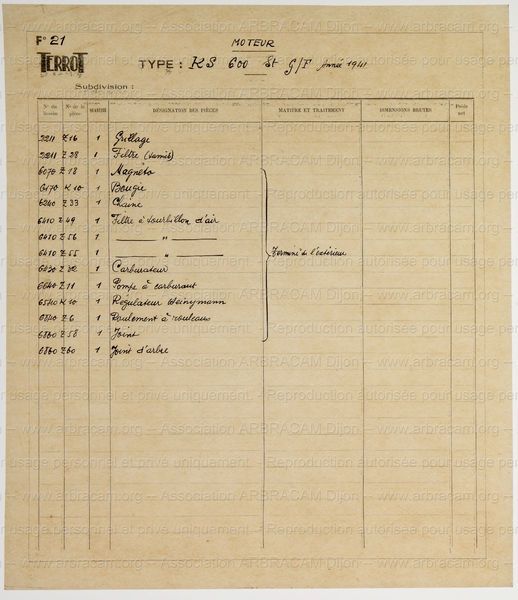 F° 21
MOTEUR
TERROT
TYPE : KS 600 St G/F Année 1941
Subdivision :
N° du dessin N° de la pièce QUANTITÉ DÉSIGNATION DES PIÈCES MATIÈRE ET TRAITEMENT DIMENSIONS BRUTES Poids net
2211 Z 16 1 Grillage
2211 Z 28 1 Filtre (tamis)
6070 Z 18 1 Magnéto
6170 K 10 1 Bougie
6260 Z 33 1 Chaine
6410 Z 49 1 Filtre à tourbillon d'air
6410 Z 56 1 — " —
6410 Z 55 1 — " — Terminé de l'extérieur
6430 Z 92 1 Carburateur
6640 Z 11 1 Pompe à carburant
6540 K 10 1 Regulateur Weinymann
6840 Z 6 1 Roulement à rouleaux
6860 Z 58 1 Joint
6860 Z 60 1 Joint d'arbre
www.arbracam.org -- Association ARBRACAM Dijon -- www.arbracam.org
Reproduction autorisée pour usage personnel et privé uniquement